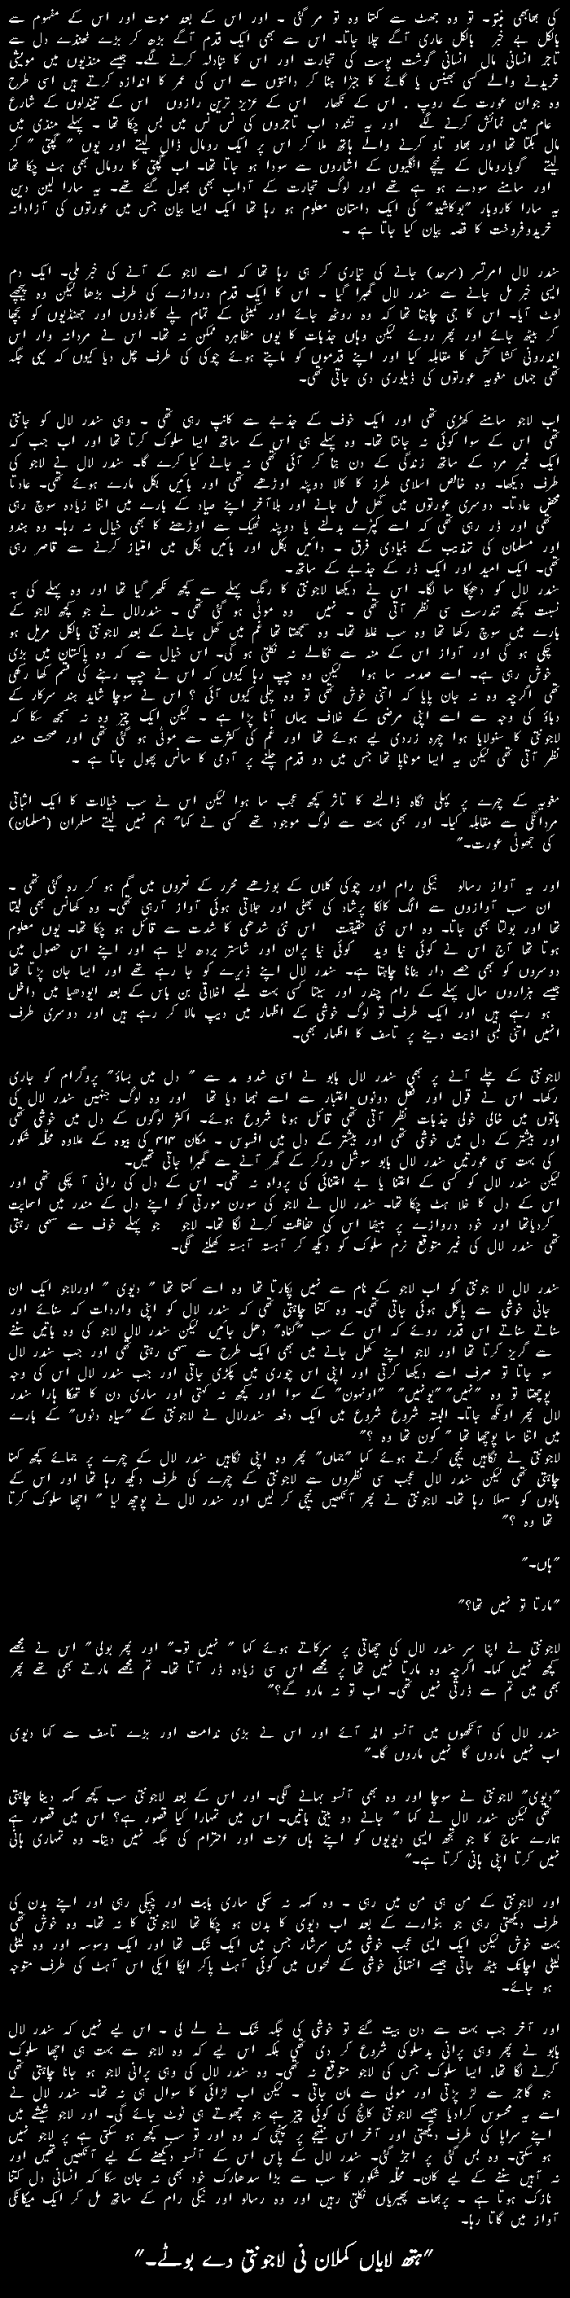 کی بھابھی بنتو۔ تو وہ جھٹ سے کہتا وہ تو مر گئی ۔ اور اس کے بعد موت اور اس کے مفہوم سے
بالکل بے خبر بالکل عاری آگے چلا جاتا۔ اس سے بھی ایک قدم آگے بڑھ کر بڑے ٹھنڈے دل سے
تاجر انسانی مال انسانی گوشت پوست کی تجارت اور اس کا تبادلہ کرنے لگے۔ جیسے منڈیوں میں مویشی
خریدنے والے کسی بھینس یا گائے کا جبڑا ہٹا کر دانتوں سے اس کی عمر کا اندازہ کرتے ہیں اسی طرح
وہ جوان عورت کے روپ ، اس کے نکھار اس کے عزیز ترین رازوں اس کے تیندلوں کے شارع
عام میں نمائش کرنے لگے اور یہ تشدد اب تاجروں کی نس نس میں بس چکا تھا ۔ پہلے منڈی میں
مال بکتا تھا اور بھاو تاو کرنے والے ہاتھ ملا کر اس پر ایک رومال ڈال لیتے اور یوں " گپتی " کر
لیتے گویا رومال کے نیچے انگلیوں کے اشاروں سے سودا ہو جاتا تھا۔ اب گپتی کا رومال بھی ہٹ چکا تھا
اور سامنے سودے ہو ہے تھے اور لوگ تجارت کے آداب بھی بھول گئے تھے۔ یہ سارا لین دین
یہ سارا کاروبار "بوکاشیو" کی ایک داستان معلوم ہو رہا تھا ایک ایسا بیان جس میں عورتوں کی آزادانہ
خریدوفروخت کا قصہ بیان کیا جاتا ہے ۔

سندر لال امرتسر (سرحد) جانے کی تیاری کر ہی رہا تھا کہ اسے لاجو کے آنے کی خبر ملی۔ ایک دم
ایسی خبر مل جانے سے سندر لال گھبرا گیا ۔ اس کا ایک قدم دروازے کی طرف بڑھا لیکن وہ پیچھے
لوٹ آیا۔ اس کا جی چاہتا تھا کہ وہ روٹھ جائے اور کمیٹی کے تمام پلے کارڈوں اور جھنڈیوں کو بچھا
کر بیٹھ جائے اور پھر روئے لیکن وہاں جذبات کا یوں مظاہرہ ممکن نہ تھا۔ اس نے مردانہ وار اس
اندرونی کشا کش کا مقابلہ کیا اور اپنے قدموں کو ماپتے ہوئے چوکی کی طرف چل دیا کیوں کہ یہی جگہ
تھی جہاں مغویہ عورتوں کی ڈیلوری دی جاتی تھی۔

اب لاجو سامنے کھڑی تھی اور ایک خوف کے جذبے سے کانپ رہی تھی ۔ وہی سندر لال کو جانتی
تھی اس کے سوا کوئی نہ جانتا تھا۔ وہ پہلے ہی اس کے ساتھ ایسا سلوک کرتا تھا اور اب جب کہ
ایک غیر مرد کے ساتھ زندگی کے دن بتا کر آئی تھی نہ جانے کیا کرے گا۔ سندر لال نے لاجو کی
طرف دیکھا۔ وہ خالص اسلامی طرز کا لال دوپٹہ اوڑھے تھی اور بائیں بکل مارے ہوئے تھی۔ عادتا
محض عادتا۔ دوسری عورتوں میں گھل مل جانے اور بلآخر اپنے صیاد کے بارے میں اتنا زیادہ سوچ رہی
تھی اور ڈر رہی تھی کہ اسے کپڑے بدلنے یا دوپٹہ ٹھیک سے اوڑھنے کا بھی خیال نہ رہا۔ وہ ہندو
اور مسلمان کی تہذیب کے بنیادی فرق ۔ دائیں بکل اور بائیں بکل میں امتیاز کرنے سے قاصر رہی
تھی۔ ایک امید اور ایک ڈر کے جذبے کے ساتھ۔
سندر لال کو دھچکا سا لگا۔ اس نے دیکھا لاجونتی کا رنگ پہلے سے کچھ نکھر گیا تھا اور وہ پہلے کی بہ
نسبت کچھ تندرست سی نظر آتی تھی ۔ نہیں وہ موٹی ہو گئی تھی ۔ سندرلال نے جو کچھ لاجو کے
بارے میں سوچ رکھا تھا وہ سب غلط تھا۔ وہ سمجھتا تھا غم میں گھل جانے کے بعد لاجونتی بالکل مریل ہو
چکی ہو گی اور آواز اس کے منہ سے نکالے نہ نکلتی ہو گی۔ اس خیال سے کہ وہ پاکستان میں بڑی
خوش رہی ہے۔ اسے صدمہ سا ہوا لیکن وہ چپ رہا کیوں کہ اس نے چپ رہنے کی قسم کھا رکھی
تھی اگرچہ وہ نہ جان پایا کہ اتنی خوش تھی تو وہ چلی کیوں آئی ؟ اس نے سوچا شاید ہند سرکار کے
دباؤ کی وجہ سے اسے اپنی مرضی کے خلاف یہاں آنا پڑا ہے ۔ لیکن ایک چیز وہ نہ سمجھ سکا کہ
لاجونتی کا سنولایا ہوا چہرہ زردی لیے ہوئے تھا اور غم کی کثرت سے موٹی ہو گئی تھی اور صحت مند
نظر آتی تھی لیکن یہ ایسا موٹاپا تھا جس میں دو قدم چلنے پر آدمی کا سانس پھول جاتا ہے ۔

مغویہ کے چہرے پر پہلی نگاہ ڈالنے کا تاثر کچھ عجب سا ہوا لیکن اس نے سب خیالات کا ایک اثباتی
مردانگی سے مقابلہ کیا۔ اور بھی بہت سے لوگ موجود تھے کسی نے کہا" ہم نہیں لیتے مسلمران (مسلمان)
کی جھوٹی عورت۔"

اور یہ آواز رسالو نیکی رام اور چوکی کلاں کے بوڑھے محرر کے نعروں میں گم ہو کر رہ گئی تھی ۔
ان سب آوازوں سے الگ کالکا پرشاد کی پھٹی اور چلاتی ہوئی آواز آرہی تھی۔ وہ کھانس بھی لیتا
تھا اور بولتا بھی جاتا۔ وہ اس نئی حقیقت اس نئی شدھی کا شدت سے قائل ہو چکا تھا۔ یوں معلوم
ہوتا تھا آج اس نے کوئی نیا وید کوئی نیا پران اور شاستر پڑھ لیا ہے اور اپنے اس حصول میں
دوسروں کو بھی حصے دار بنانا چاہتا ہے۔ سندر لال اپنے ڈیرے کو جا رہے تھے اور ایسا جان پڑتا تھا
جیسے ہزاروں سال پہلے کے رام چندر اور سیتا کسی بہت لمبے اخلاقی بن باس کے بعد ایودھیا میں داخل
ہو رہے ہیں اور ایک طرف تو لوگ خوشی کے اظہار میں دیپ مالا کر رہے ہیں اور دوسری طرف
انھیں اتنی لمبی اذیت دینے پر تاسف کا اظہار بھی۔

لاجونتی کے چلے آنے پر بھی سندر لال بابو نے اسی شدو مد سے " دل میں بساؤ" پروگرام کو جاری
رکھا۔ اس نے قول اور فعل دونوں اعتبار سے اسے نبھا دیا تھا اور وہ لوگ جنھیں سندر لال کی
باتوں میں خالی خولی جذبات نظر آتی تھی قائل ہونا شروع ہوئے۔ اکثر لوگوں کے دل میں خوشی تھی
اور بیشتر کے دل میں خوشی تھی اور بیشتر کے دل میں افسوس ۔ مکان ۴۱۴ کی بیوہ کے علاوہ محلہ شکور
کی بہت سی عورتیں سندر لال بابو سوشل ورکر کے گھر آنے سے گھبرا جاتی تھیں۔
لیکن سندر لال کو کسی کے اعتنا یا بے اعتنائی کی پرواہ نہ تھی۔ اس کے دل کی رانی آ چکی تھی اور
اس کے دل کا خلا پٹ چکا تھا۔ سندر لال نے لاجو کی سورن مورتی کو اپنے دل کے مندر میں استھاپت
کردیا تھا اور خود دروازے پر بیٹھا اس کی حفاظت کرنے لگا تھا۔ لاجو جو پہلے خوف سے سہمی رہتی
تھی سندر لال کی غیر متوقع نرم سلوک کو دیکھ کر آہستہ آہستہ کھلنے لگی۔

سندر لال لا جونتی کو اب لاجو کے نام سے نہیں پکارتا تھا وہ اسے کہتا تھا " دیوی " اورلاجو ایک ان
جانی خوشی سے پاگل ہوئی جاتی تھی۔ وہ کتنا چاہتی تھی کہ سندر لال کو اپنی واردات کہہ سنائے اور
سناتے سناتے اس قدر روئے کہ اس کے سب "گناہ" دھل جائیں لیکن سندر لال لاجو کی وہ باتیں سننے
سے گریز کرتا تھا اور لاجو اپنے کھل جانے میں بھی ایک طرح سے سہمی رہتی تھی اور جب سندر لال
سو جاتا تو صرف اسے دیکھا کرتی اور اپنی اس چوری میں پکڑی جاتی اور جب سندر لال اس کی وجہ
پوچھتا تو وہ "نہیں" "یونہیں" "اونہوں" کے سوا اور کچھ نہ کہتی اور ساری دن کا تھکا ہارا سندر
لال پھر اونگھ جاتا۔ البتہ شروع شروع میں ایک دفعہ سندرلال نے لاجونتی کے "سیاہ دنوں" کے بارے
میں اتنا سا پوچھا تھا " کون تھا وہ ؟"
لاجونتی نے نگاہیں نیچی کرتے ہوئے کہا "جماں" پھر وہ اپنی نگاہیں سندر لال کے چہرے پر جمائے کچھ کہنا
چاہتی تھی لیکن سندر لال عجب سی نظروں سے لاجونتی کے چہرے کی طرف دیکھ رہا تھا اور اس کے
بالوں کو سہلا رہا تھا۔ لاجونتی نے پھر آنکھیں نیچی کر لیں اور سندر لال نے پوچھ لیا " اچھا سلوک کرتا
تھا وہ ؟"

"ہاں۔"

"مارتا تو نہیں تھا؟"

لاجونتی نے اپنا سر سندر لال کی چھاتی پر سرکاتے ہوئے کہا " نہیں تو۔" اور پھر بولی" اس نے مجھے
کچھ نہیں کہا۔ اگرچہ وہ مارتا نہیں تھا پر مجھے اس سی زیادہ ڈر آتا تھا۔ تم مجھے مارتے بھی تھے پھر
بھی میں تم سے ڈرتی نہیں تھی۔ اب تو نہ مارو گے؟"

سندر لال کی آنکھوں میں آنسو امڈ آئے اور اس نے بڑی ندامت اور بڑے تاسف سے کہا دیوی
اب نہیں ماروں گا نہیں ماروں گا۔"

"دیوی" لاجونتی نے سوچا اور وہ بھی آنسو بہانے لگی۔ اور اس کے بعد لاجونتی سب کچھ کہہ دینا چاہتی
تھی لیکن سندر لال نے کہا " جانے دو بیتی باتیں۔ اس میں تمہارا کیا قصور ہے؟ اس میں قصور ہے
ہمارے سماج کا جو تجھ ایسی دیویوں کو اپنے ہاں عزت اور احترام کی جگہ نہیں دیتا۔ وہ تمہاری ہانی
نہیں کرتا اپنی ہانی کرتا ہے۔"

اور لاجونتی کے من ہی من میں رہی ۔ وہ کہہ نہ سکی ساری بابت اور چپکی رہی اور اپنے بدن کی
طرف دیکھتی رہی جو بٹوارے کے بعد اب دیوی کا بدن ہو چکا تھا لاجونتی کا نہ تھا۔ وہ خوش تھی
بہت خوش لیکن ایک ایسی عجب خوشی میں سرشار جس میں ایک شک تھا اور ایک وسوسہ اور وہ لیٹی
لیٹی اچانک بیٹھ جاتی جیسے انتہائی خوشی کے لمحوں میں کوئی آہٹ پاکر ایکا ایکی اس آہٹ کی طرف متوجہ
ہو جائے۔

اور آخر جب بہت سے دن بیت گئے تو خوشی کی جگہ شک نے لے لی ۔ اس لیے نہیں کہ سندر لال
بابو نے پھر وہی پرانی بدسلوکی شروع کر دی تھی بلکہ اس لیے کہ وہ لاجو سے بہت ہی اچھا سلوک
کرنے لگا تھا۔ ایسا سلوک جس کی لاجو متوقع نہ تھی۔ وہ سندر لال کی وہی پرانی لاجو ہو جانا چاہتی تھی
جو گاجر سے لڑ پڑتی اور مولی سے مان جاتی ۔ لیکن اب لڑائی کا سوال ہی نہ تھا۔ سندر لال نے
اسے یہ محسوس کرادیا جیسے لاجونتی کانچ کی کوئی چیز ہے جو چھوتے ہی ٹوٹ جائے گی۔ اور لاجو شیشے میں
اپنے سراپا کی طرف دیکھتی اور آخر اس نتیجے پر پہنچی کہ وہ اور تو سب کچھ ہو سکتی ہے پر لاجو نہیں
ہو سکتی۔ وہ بس گئی پر اجڑ گئی۔ سندر لال کے پاس اس کے آنسو دیکھنے کے لیے آنکھیں تھیں اور
نہ آہیں سننے کے لیے کان۔ محلہ شکور کا سب سے بڑا سدھارک خود بھی نہ جان سکا کہ انسانی دل کتنا
نازک ہوتا ہے ۔ پربھات پھیریاں نکلتی رہیں اور وہ رسالو اور نیکی رام کے ساتھ مل کر ایک میکانکی
آواز میں گاتا رہا۔

"ہتھ لایاں کملان نی لاجونتی دے بوٹے۔"